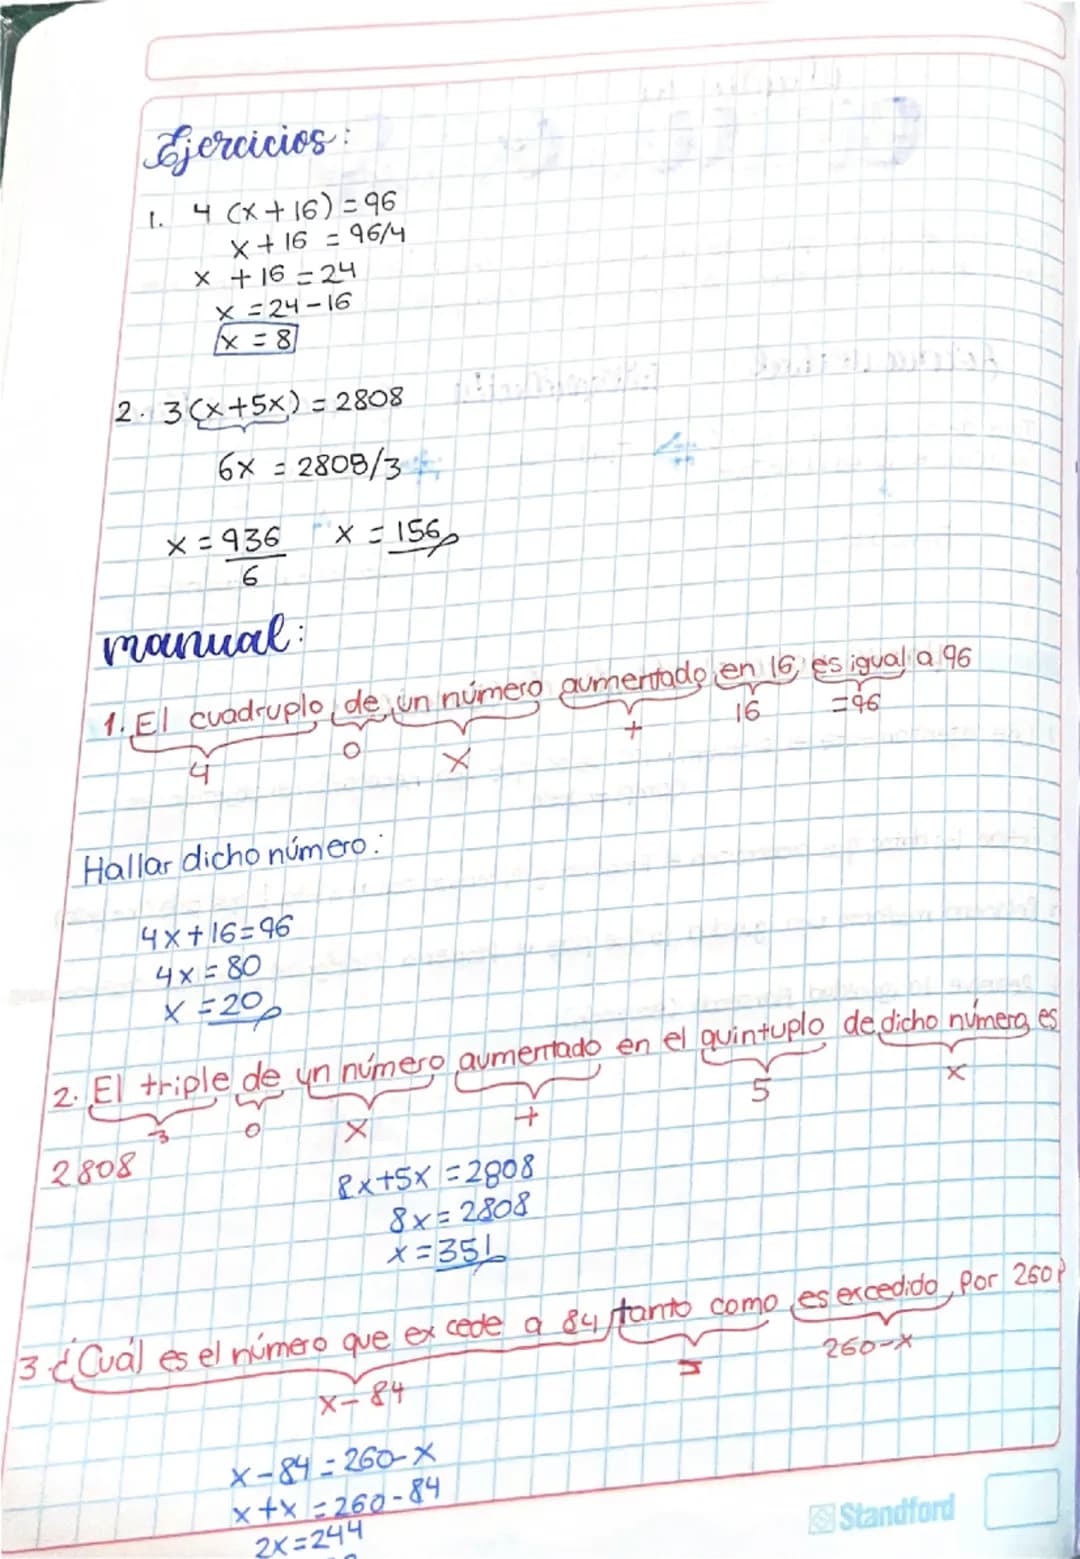 Ejercicios:
1. 4 (x+16) = 96
x + 16 = 96/4
x + 16 = 24
x = 24 - 16
x = 8
2. 3(x+5x) = 2808
6x = 2808/3
x = 936/6 x = 156
manual:
1. El cuadruplo de un número aumentado en 16, es igual a 96
4 o x + 16 =96
Hallar dicho número:
4x+16=96
4x = 80
x = 20
2. El triple de un número aumentado en el quintuplo de dicho número es
3 o x + 5 x
2808
8x+5x = 2808
8x = 2808
x = 351
3. ¿Cuál es el número que excede a 84, tanto como es excedido por 260?
x - 84 = 260-x
x - 84 = 260-x
x + x = 260-84
2x = 244
Standford